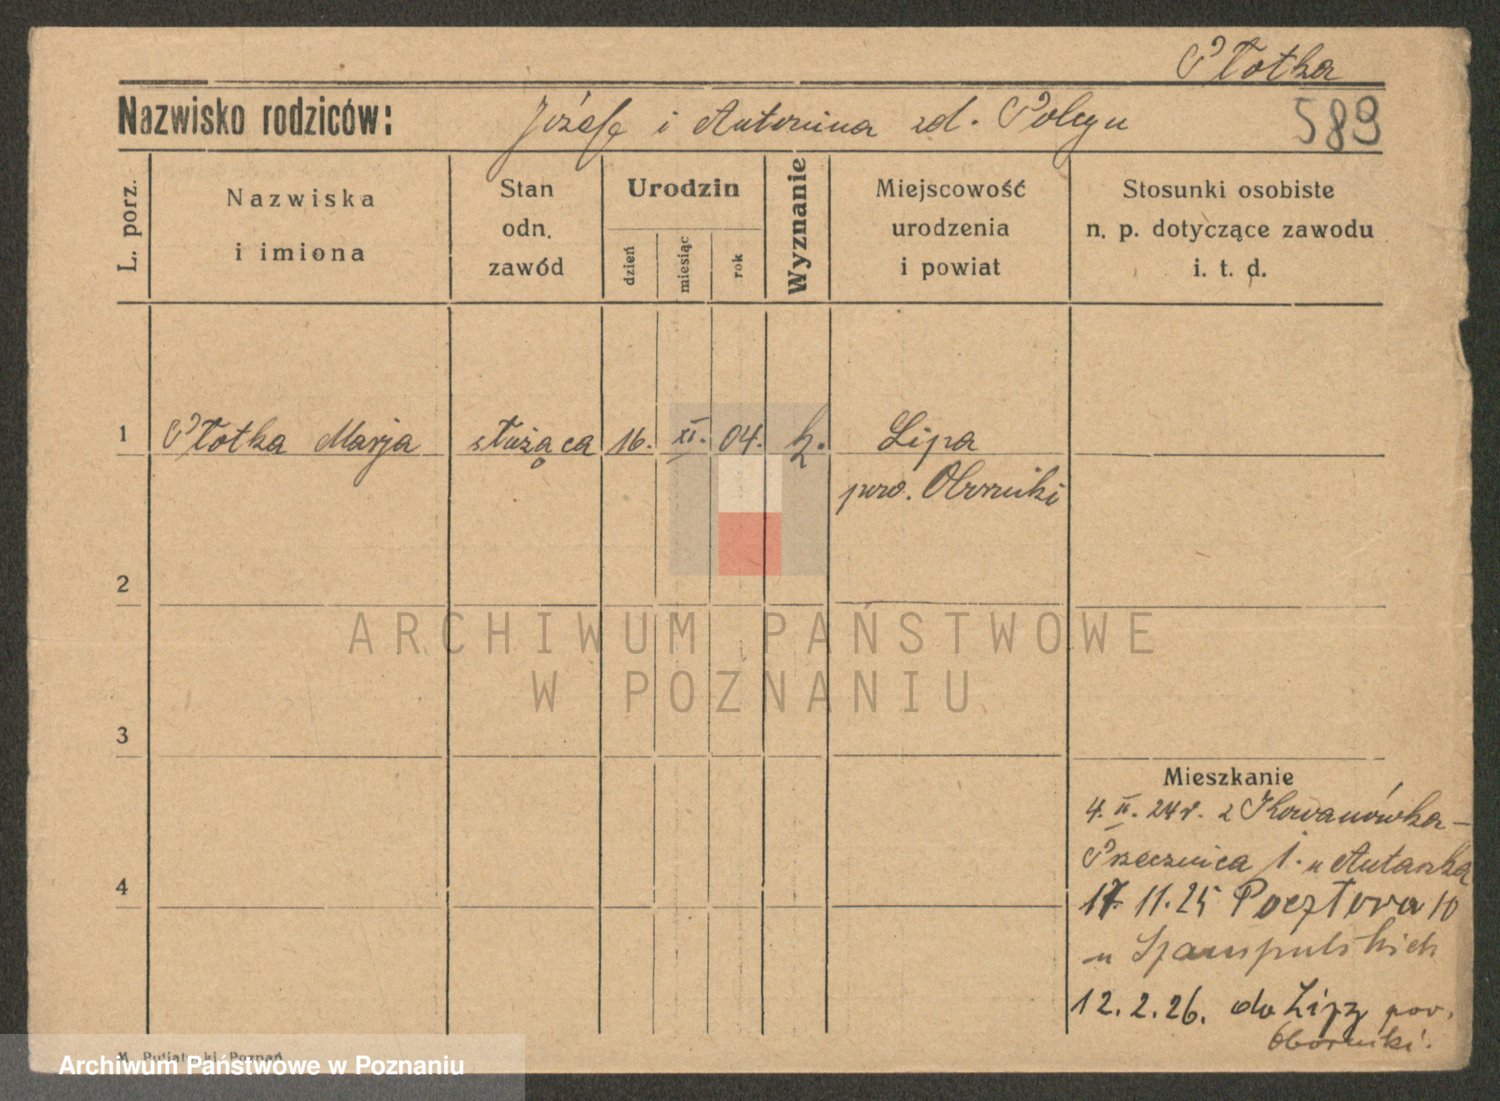 Płotka
Nazwisko rodziców: Józefa i Antonina zd.
589
L. porz.
Nazwiska
i imiona
Stan
odn.
zawód
Urodzin
dzień
miesiąc
rok
Wyznanie
Miejscowość
urodzenia
i powiat
Stosunki osobiste
n. p. dotyczące zawodu
i. t. d.
1 Płotka Marja służąca 16. XI. 04. k. Lipa
pow. Oborniki
2
ARCHIWUM PAŃSTWOWE
W POZNANIU
3
Mieszkanie
4. II. 24 r. z Kowanówka -
Przecznica 1. u
4
17. 11. 25 Pocztowa 10
u Szamputskich
12. 2. 26. do Lipy pow.
Oborniki.
Poznań
Archiwum Państwowe w Poznaniu